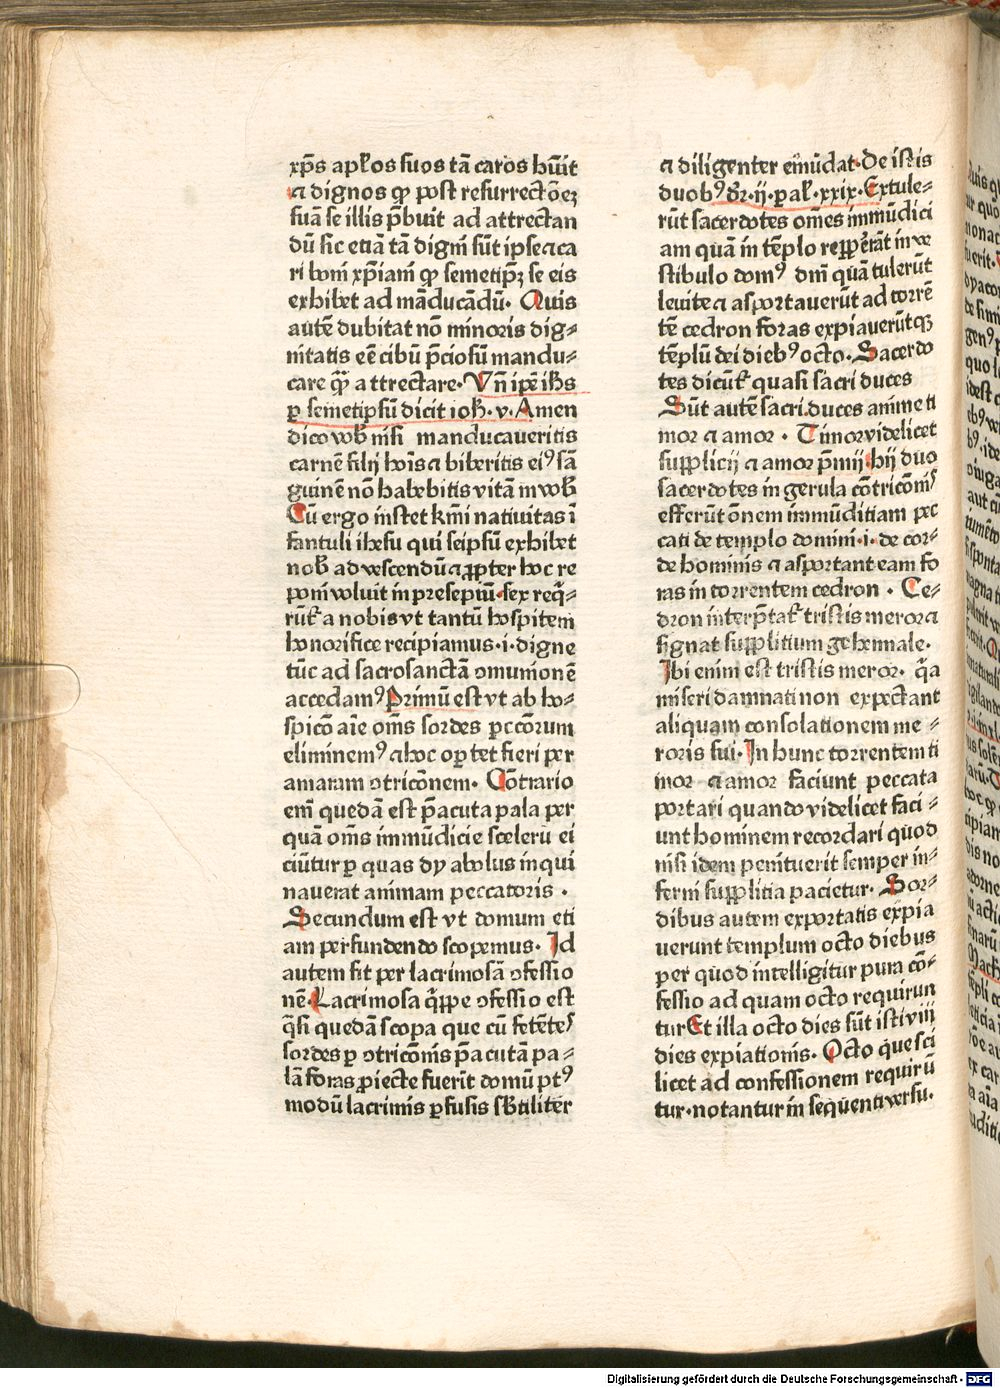 xp̄s apl̄os suos tā caros hūit
⁊ dignos qꝙ post resurrectōeꝫ
suā se illis p̄buit ad attrectan
dū sic etiā tā digni sūt ipse ⁊ ca
ri boni xp̄iani qꝙ semetipꝫ se eis
exhibet ad māducādū. Quis
autē dubitat nō minoris dig⸗
nitatis eē cibū p̄ciosū mandu⸗
care qꝫ attrectare. Vn̄ ipe ih̄s
ꝑ semetipsū dicit ioh̄. v. Amen
dico vob̄ nisi manducaueritis
carnē filij hoīs ⁊ biberitis eiꝰ sā
guinē nō habebitis vitā in vob̄
Cū ergo instet k̄mi natiuitas ī
fantuli ihesu qui seipsū exhibet
nob̄ ad vescendū ⁊ ꝓpter hoc re
poni voluit in presepiū. sex reqͥ⸗
rūt̄ a nobis vt tantū hospitem
honorifice recipiamus .i. digne
tūc ad sacrosanctā ꝯmunionē
accedamꝰ Primū est vt ab ho⸗
spicō aīe om̄s sordes pccōrum
eliminemꝰ ⁊ hoc oꝑtet fieri per
amaram ꝯtricōnem. Cōtrario
em̄ quedā est p̄acuta pala per
quā om̄s immūdicie sceleru ei
ciūtur ꝑ quas dyabolus inqui
nauerat animam peccatoris .
Secundum est vt domum eti
am perfundendo scopemus. Id
autem fit per lacrimosā ꝯfessio
nē. Lacrimosa qͥppe ꝯfessio est
qͣsi quedā scopa que cū fetētes
sordes ꝑ ꝯtricōnis p̄acutā pa⸗
lā foras ꝓiecte fuerīt domū ptꝰ
modū lacrimis ꝑfusis sb̄tiliter
⁊ diligenter emūdat. De istis
duobꝰ dr̄ .ii. pal̄. xxix. Extule⸗
rūt sacerdotes om̄es immūdici
am quā in tēplo reꝑꝑerāt in ve
stibulo domꝰ dn̄i quā tulerūt
leuite ⁊ asportauerūt ad torrē
tē cedron foras expiauerūtqꝫ
tēplū dei diebꝰ octo. Sacerdo
tes dicūt̄ quasi sacri duces
Sūt autē sacri duces anime ti
mor ⁊ amor . Timor videlicet
supplicij ⁊ amor p̄mij. hij duo
sacerdotes in gerula cōtricōnis
efferūt ōnem immūditiam pec
cati de templo domini .i. de cor⸗
de hominis ⁊ asportant eam fo
ras in torrentem cedron . Ce⸗
dron interp̄tat̄ tristis meror ⁊
signat supplitium gehennale.
Ibi enim est tristis meror. qͣa
miseri damnati non expectant
aliquam consolationem me⸗
roris sui. In hunc torrentem ti
mor ⁊ amor faciunt peccata
portari quando videlicet faci⸗
unt hominem recordari quod
nisi idem penituerit semper in⸗
ferni supplitia pacietur. Sor⸗
dibus autem exportatis expia
uerunt templum octo diebus
per quod intelligitur pura cō⸗
fessio ad quam octo requirun
tur Et illa octo dies sūt isti viij
dies expiationis. Octo que sci
licet ad confessionem requirū
tur. notantur in sequenti versu.
Digitalisierung gefördert durch die Deutsche Forschungsgemeinschaft - DFG